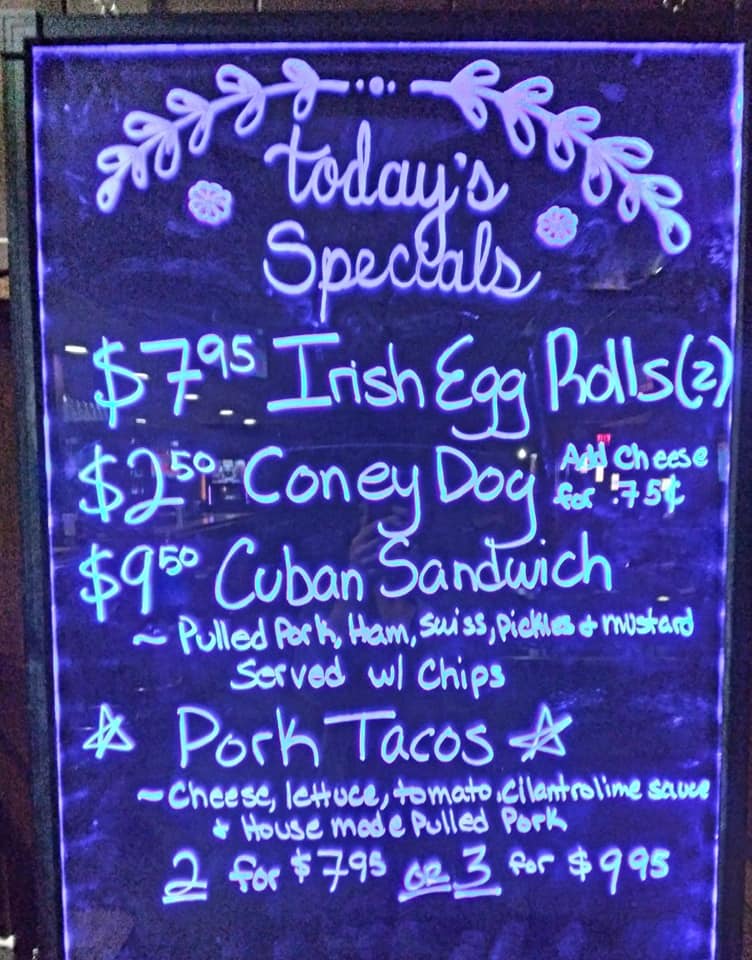 today's
Specials
$7.95 Irish Egg Rolls (2)
$2.50 Coney Dog Add Cheese
for .75¢
$9.50 Cuban Sandwich
~ Pulled Pork, Ham, Swiss, Pickles & mustard
Served w/ Chips
☆ Pork Tacos ☆
~ Cheese, lettuce, tomato, cilantro lime sauce
& House made Pulled Pork
2 for $7.95 or 3 for $9.95